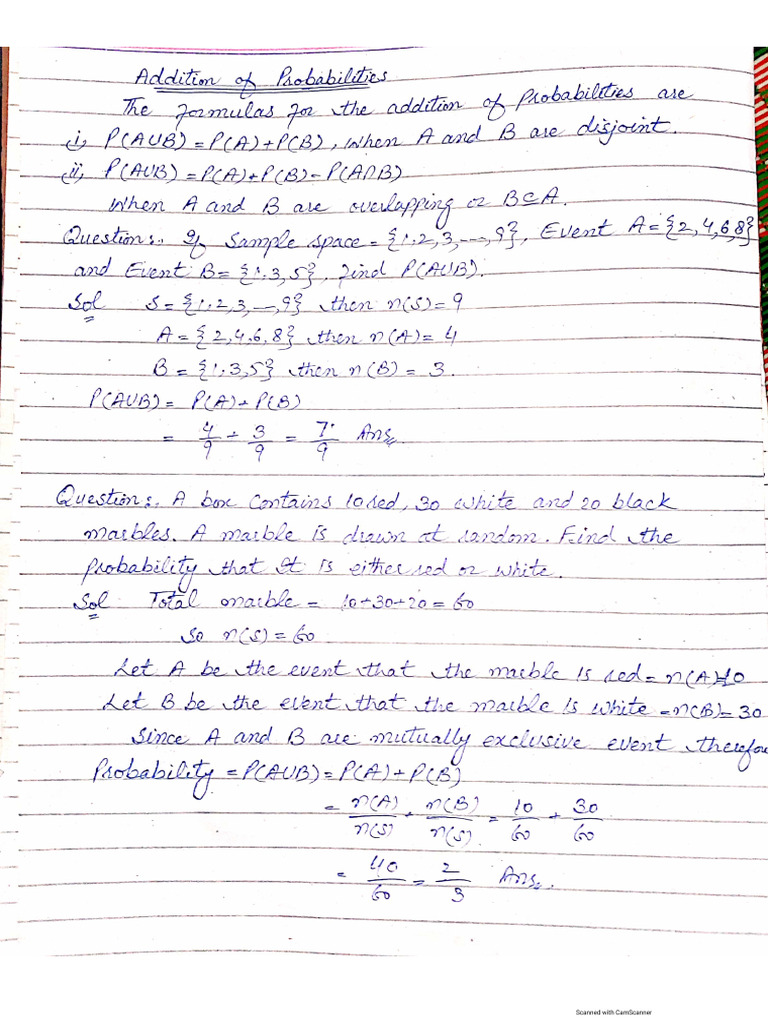 Addition of Probabilities
The formulas for the addition of Probabilities are
i, P(A∪B) = P(A)+P(B), when A and B are disjoint.
ii, P(A∪B) = P(A)+P(B)-P(A∩B)
when A and B are overlapping or B⊆A.
Question:. If Sample space = {1,2,3,---,9}, Event A = {2,4,6,8}
and Event B = {1,3,5}, find P(A∪B).
Sol S = {1,2,3,--,9} then n(S) = 9
A = {2,4,6,8} then n(A) = 4
B = {1,3,5} then n(B) = 3.
P(A∪B) = P(A)+P(B)
= 4/9 + 3/9 = 7/9 Ans.
Question:. A box contains 10 red, 30 white and 20 black
marbles. A marble is drawn at random. Find the
probability that it is either red or white.
Sol Total marble = 10+30+20 = 60
so n(S) = 60
Let A be the event that the marble is red = n(A)=10
Let B be the event that the marble is white = n(B) = 30
Since A and B are mutually exclusive event therefore
Probability = P(A∪B) = P(A)+P(B)
= n(A)/n(S) + n(B)/n(S) = 10/60 + 30/60
= 40/60 = 2/3 Ans.
Scanned with CamScanner